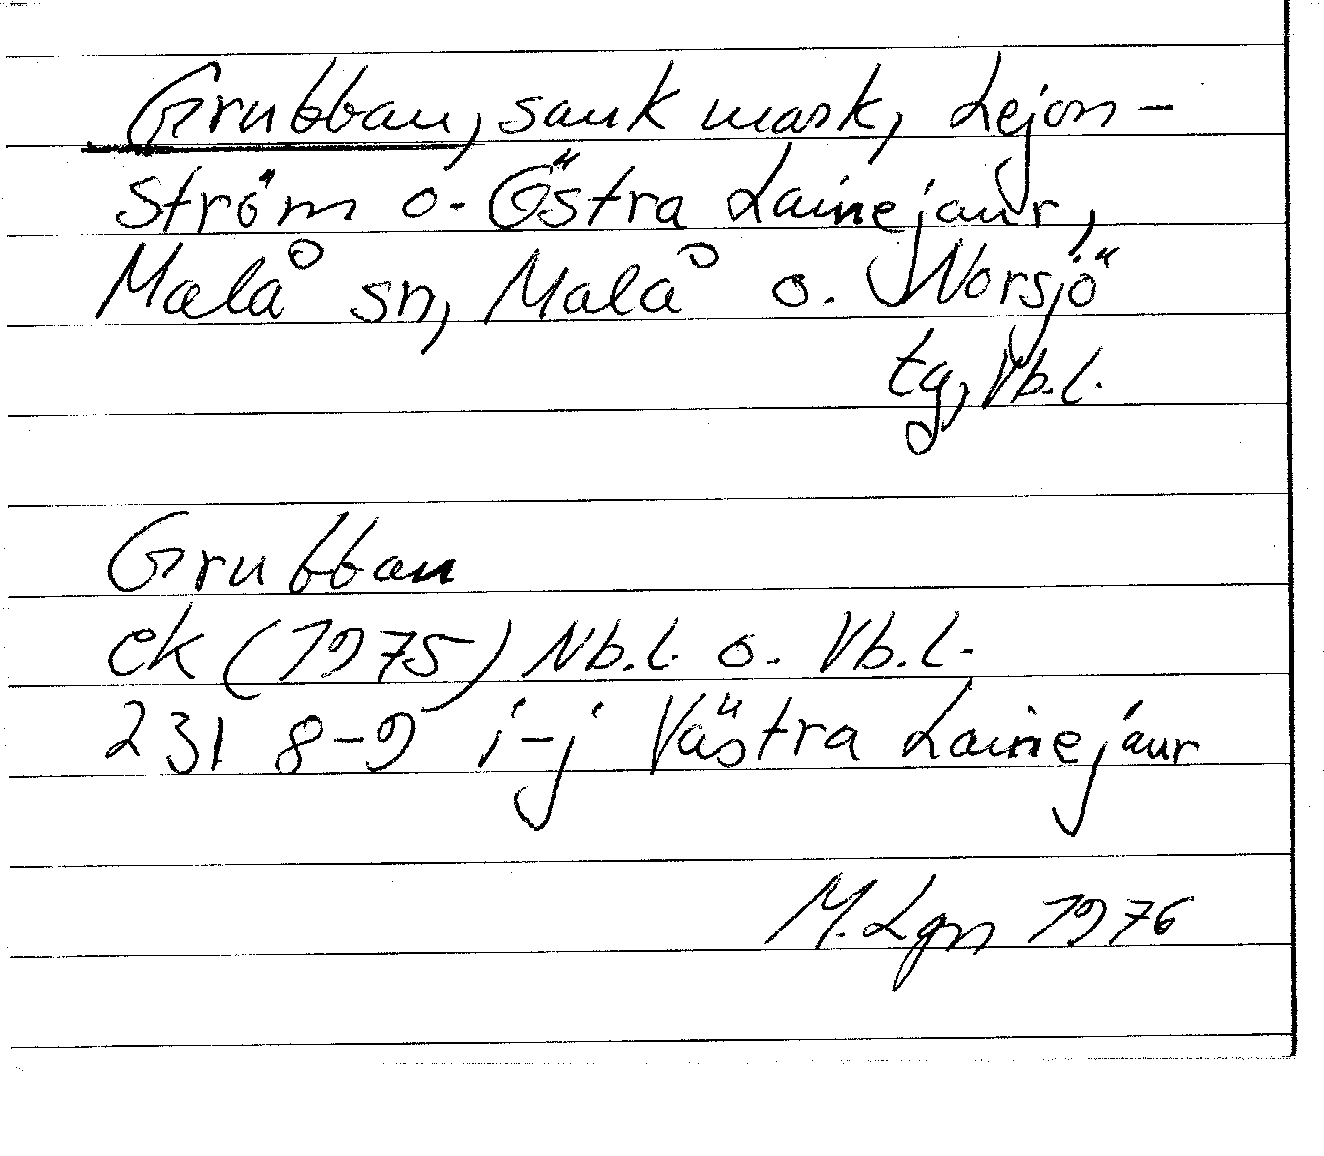 Grubban, sank mark, Lejon-
ström o. Östra Lainejaur,
Malå sn, Malå o. Norsjö
tg, Vb.l.
Grubban
ek (1975) Nb.l. o. Vb.l.
231 8-9 i-j Västra Lainejaur
M. Lgn 1976